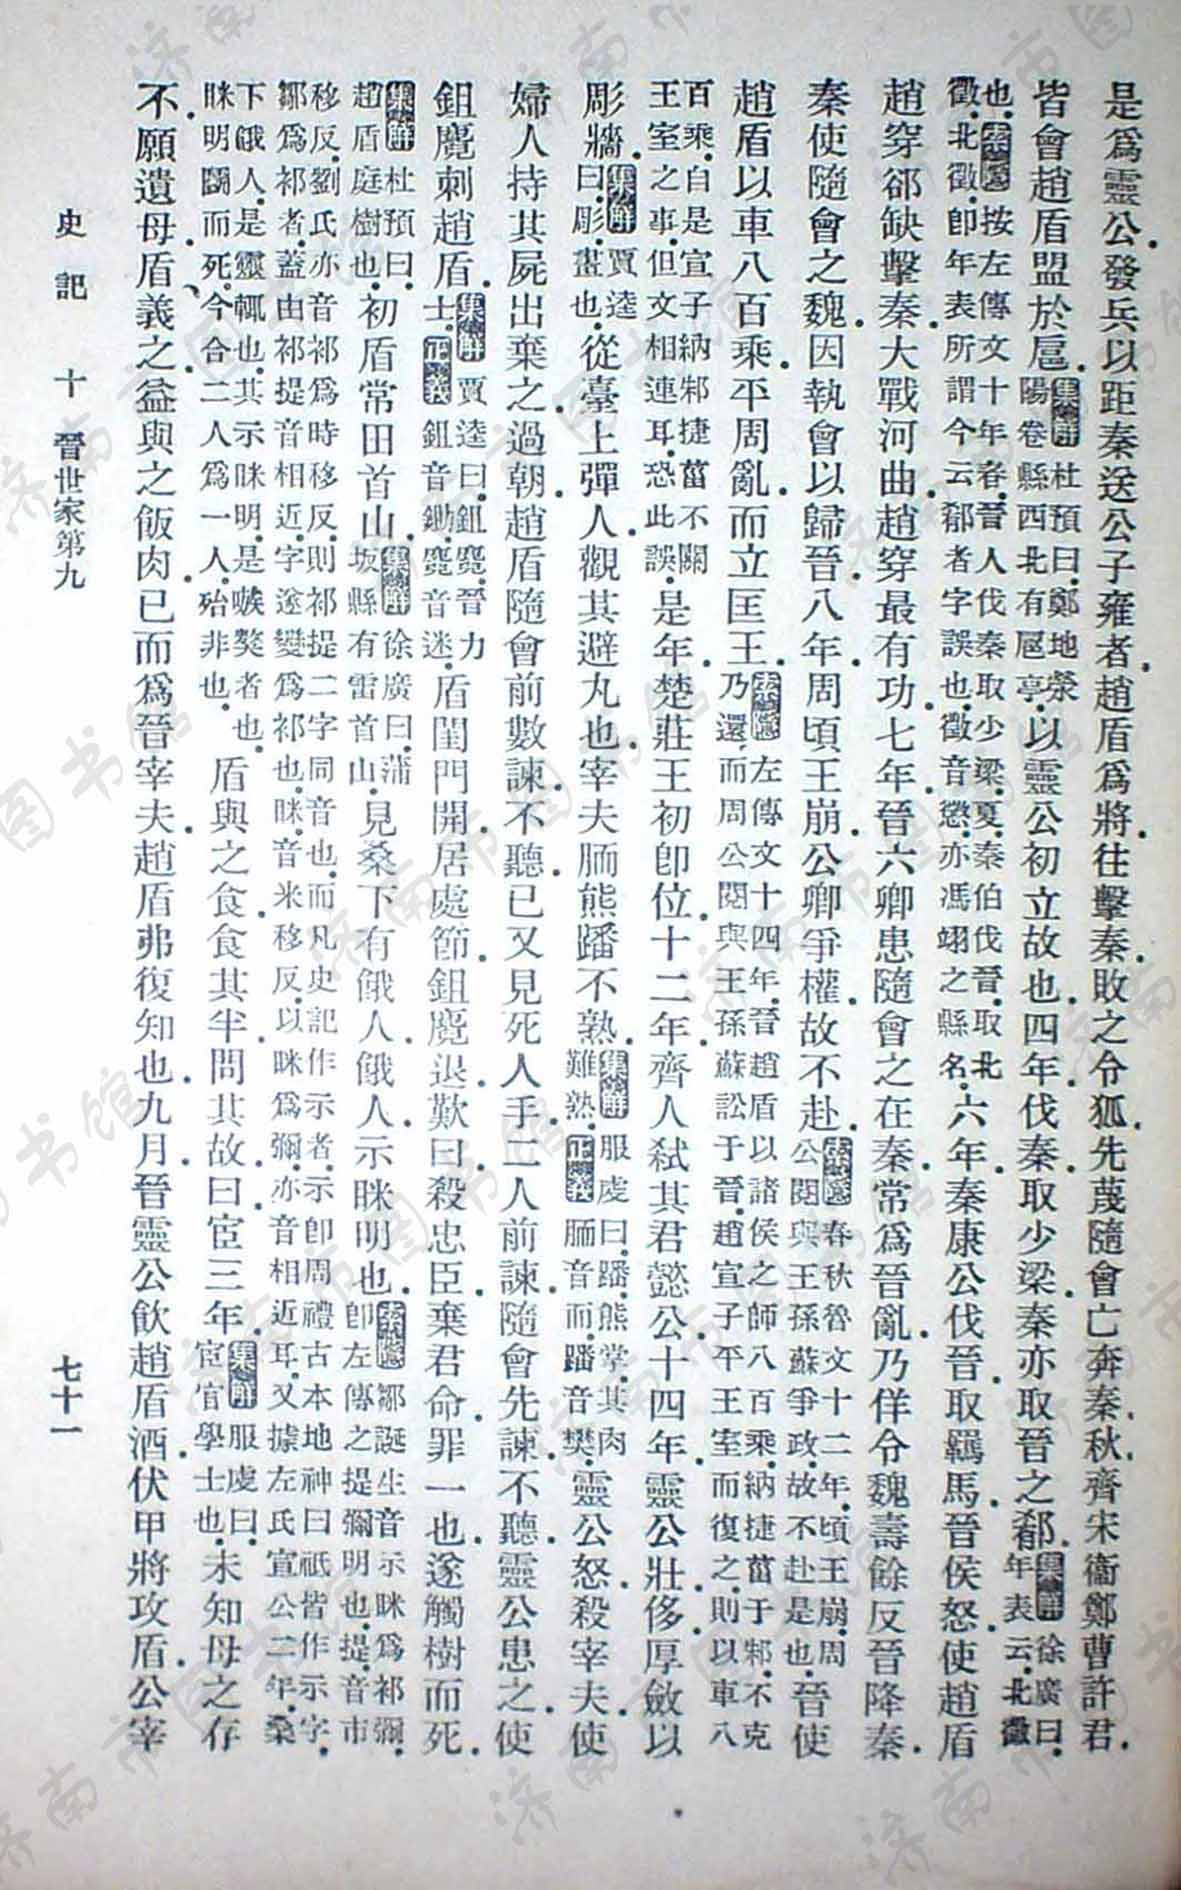 是爲靈公.發兵以距秦送公子雍者.趙盾爲將.往擊秦.敗之令狐.先蔑隨會亡奔秦.秋.齊宋衞鄭曹許君.
皆會趙盾盟於扈.集解杜預曰.鄭地.滎陽卷縣西北有扈亭.以靈公初立故也.四年.伐秦.取少梁.秦亦取晉之郩.集解徐廣曰.年表云.北徵
也.索隱按左傳文十年春.晉人伐秦取少梁.夏.秦伯伐晉.取北徵.北徵.卽年表所謂.今云郩者字誤也.徵音懲.亦馮翊之縣名.六年.秦康公伐晉.取羈馬.晉侯怒.使趙盾
趙穿郤缺擊秦.大戰河曲.趙穿最有功.七年.晉六卿患隨會之在秦.常爲晉亂.乃佯令魏壽餘反晉降秦.
秦使隨會之魏.因執會以歸晉.八年.周頃王崩.公卿爭權.故不赴.索隱春秋魯文十二年.頃王崩.周公閱與王孫蘇爭政.故不赴是也.晉使
趙盾以車八百乘.平周亂.而立匡王.索隱左傳文十四年.晉趙盾以諸侯之師八百乘.納捷菑于邾.不克乃還.而周公閱與王孫蘇訟于晉.趙宣子平王室而復之.則以車八
百乘.自是宣子納邾捷菑不關王室之事.但文相連耳.恐此誤.是年.楚莊王初卽位.十二年.齊人弒其君懿公.十四年.靈公壯.侈.厚斂以
彫牆.集解賈逵曰.彫.畫也.從臺上彈人.觀其避丸也.宰夫胹熊蹯不熟.集解服虔曰.蹯.熊掌.其肉難熟.正義胹音而.蹯音樊.靈公怒.殺宰夫.使
婦人持其屍出棄之.過朝.趙盾隨會前數諫.不聽.已又見死人手.二人前諫.隨會先諫.不聽.靈公患之.使
鉏麑刺趙盾.集解賈逵曰.鉏麑.晉力士.正義鉏音鋤.麑音迷.盾閨門開.居處節.鉏麑退.歎曰.殺忠臣.棄君命.罪一也.遂觸樹而死.
集解杜預曰.趙盾庭樹也.初.盾常田首山.集解徐廣曰.蒲坂縣有雷首山.見桑下有餓人.餓人.示眯明也.索隱鄒誕生音示眯爲祁彌.卽左傳之提彌明也.提音市
移反.劉氏亦音祁爲時移反.則祁提二字同音也.而凡史記作示者.示卽周禮古本地神曰祇.皆作示字.鄒爲祁者.蓋由祁提音相近.字遂變爲祁也.眯音米移反.以眯爲彌.亦音相近耳.又據左氏宣公二年.桑
下餓人.是靈輒也.其示眯明.是嗾獒者也.眯明鬭而死.今合二人爲一人.殆非也.盾與之食.食其半.問其故.曰.宦三年.集解服虔曰.宦.宦學士也.未知母之存
不.願遺母.盾義之.益與之飯肉.已而爲晉宰夫.趙盾弗復知也.九月.晉靈公飲趙盾酒.伏甲將攻盾.公宰
史記 十 晉世家第九 七十一
济南市图书馆